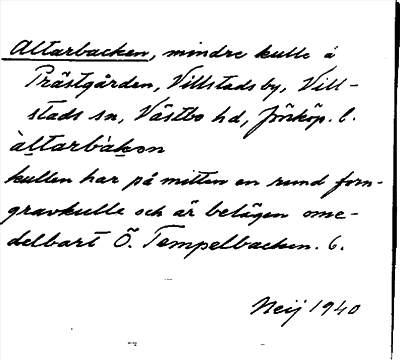 Altarbacken, mindre kulle å
Prästgården, Villstads by, Vill-
stads sn, Västbo hd, Jönköp. l.
àltarbàkən
kullen har på mitten en rund forn-
gravkulle och är belägen ome-
delbart Ö. Tempelbacken. 6.
Neij 1940